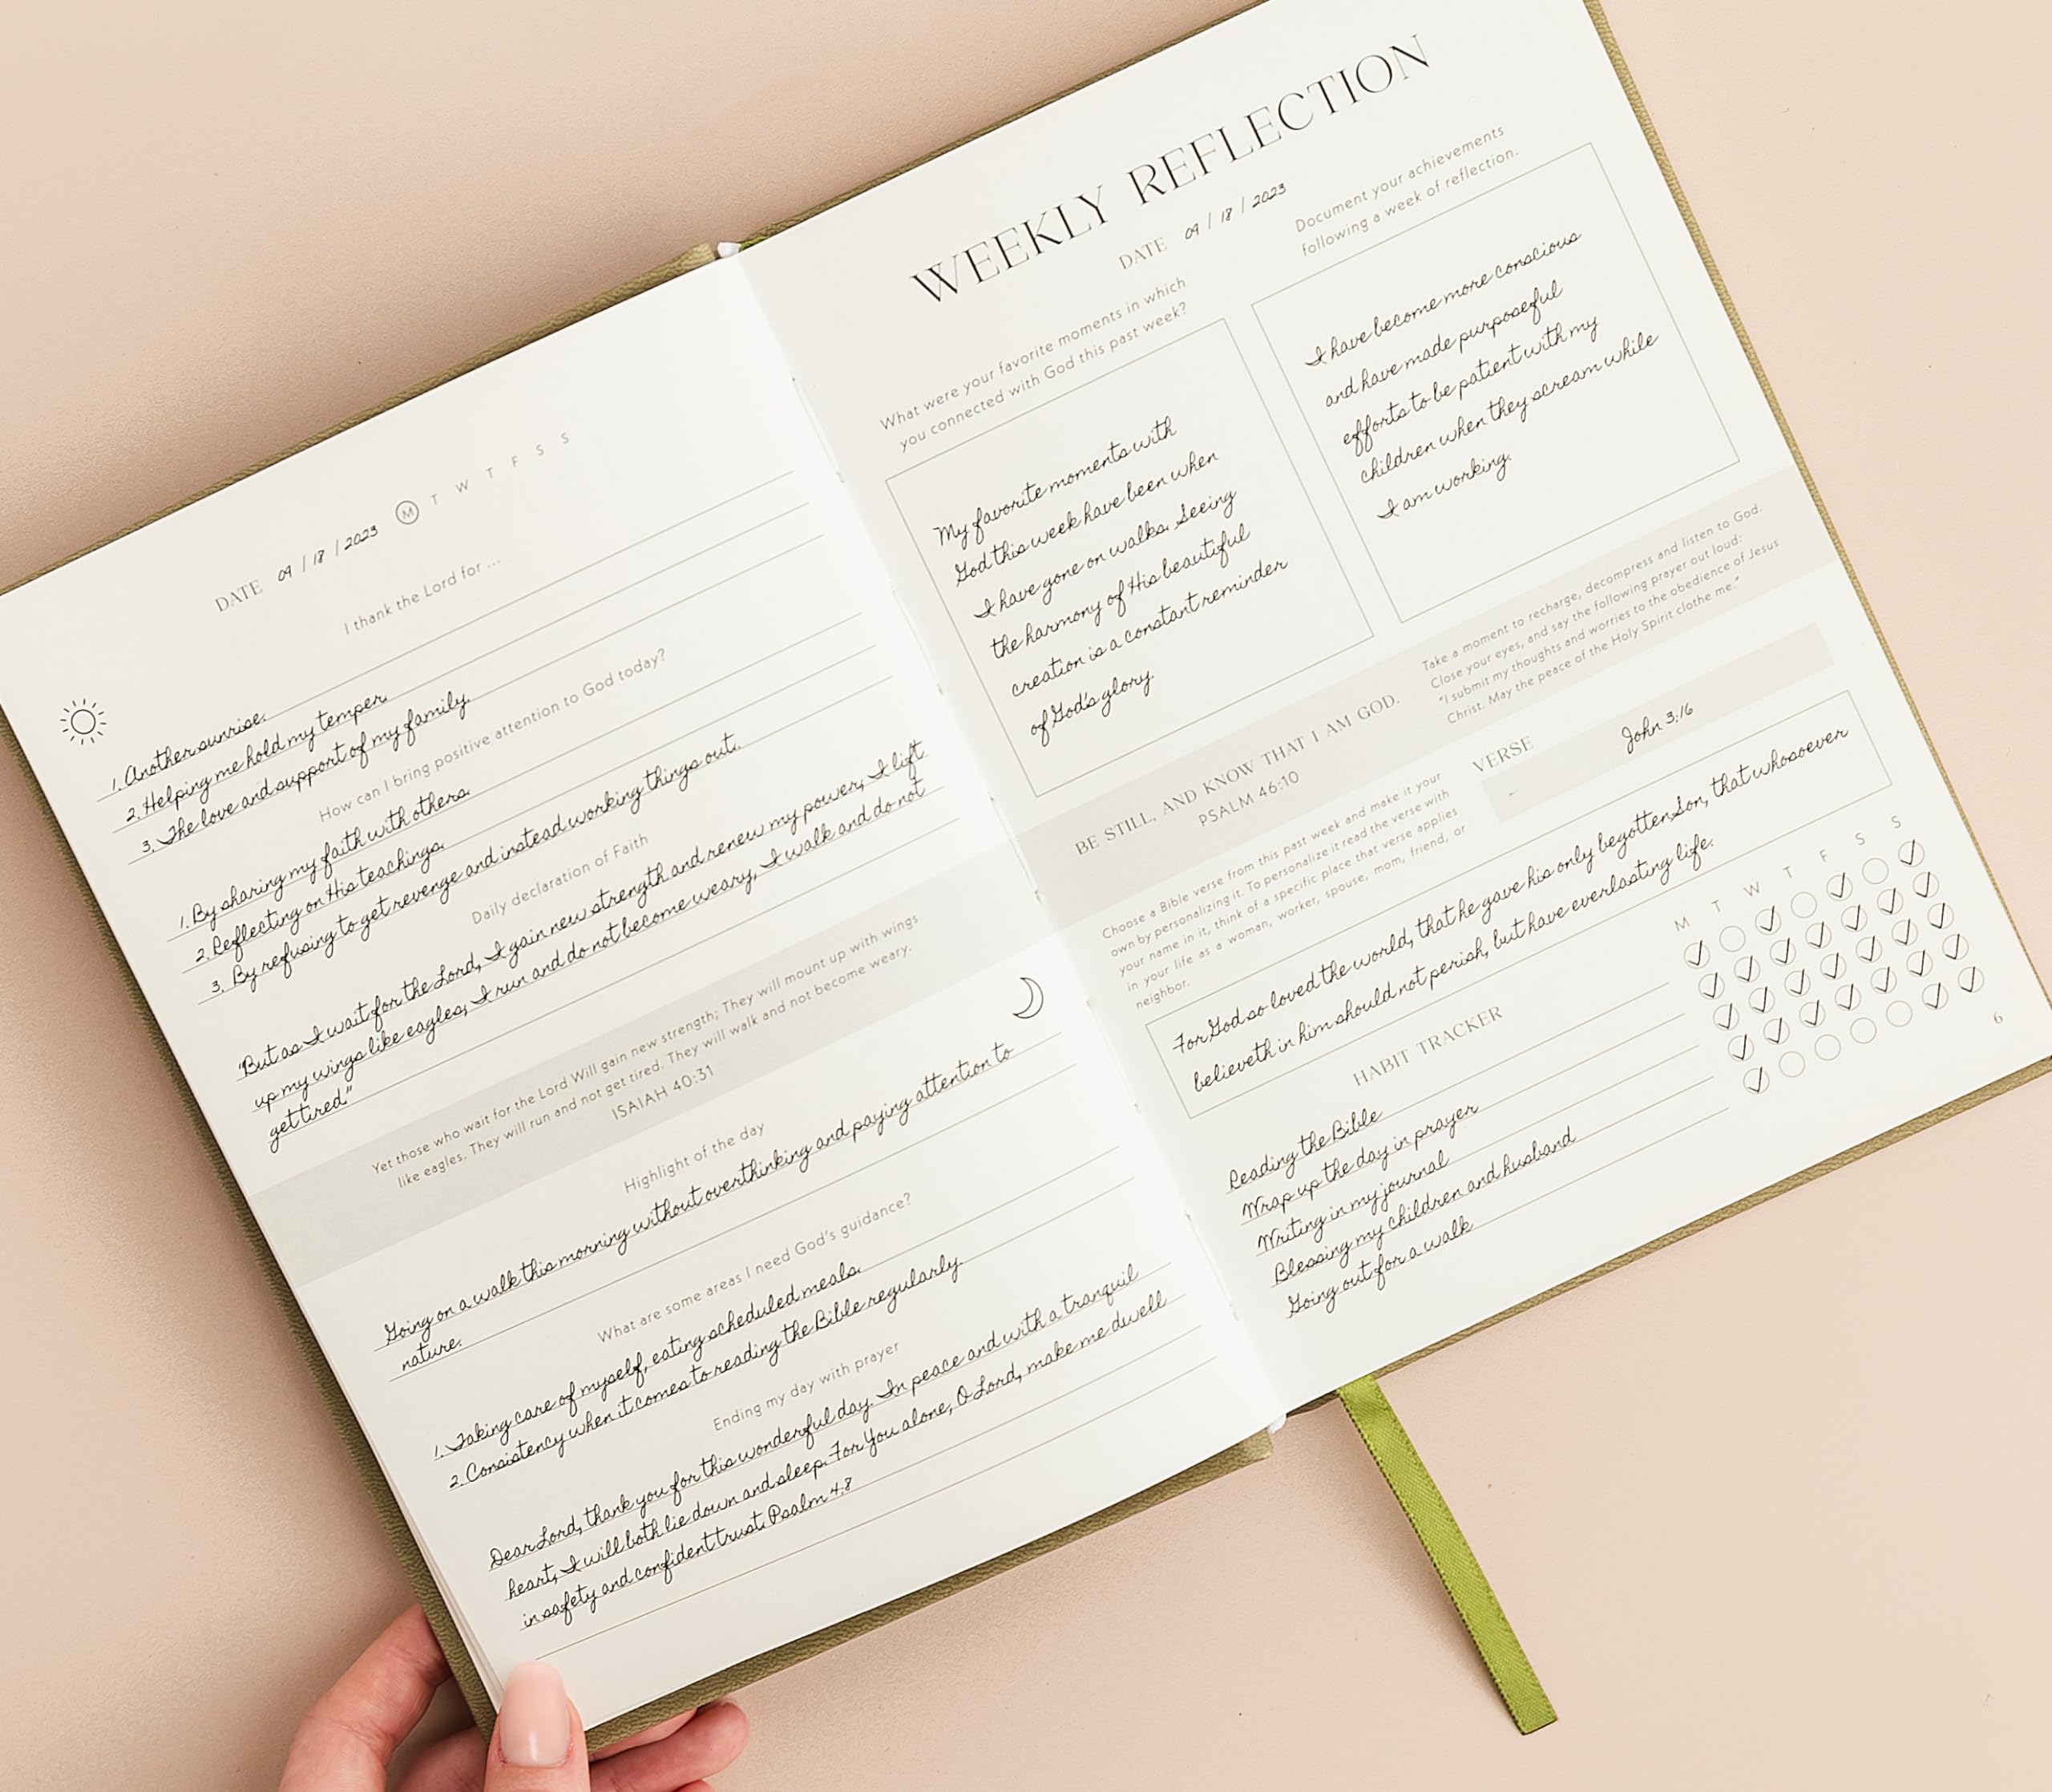 DATE 09 / 18 / 2023 M T W T F S S
I thank the Lord for ...
1. Another sunrise.
2. Helping me hold my temper.
3. The love and support of my family.
How can I bring positive attention to God today?
1. By sharing my faith with others.
2. Reflecting on His teachings.
3. By refusing to get revenge and instead working things out.
Daily declaration of Faith
"But as I wait for the Lord, I gain new strength and renew my power; I lift
up my wings like eagles; I run and do not become weary, I walk and do not
get tired."
Yet those who wait for the Lord Will gain new strength; They will mount up with wings
like eagles. They will run and not get tired. They will walk and not become weary.
ISAIAH 40:31
Highlight of the day
Going on a walk this morning without overthinking and paying attention to
nature.
What are some areas I need God's guidance?
1. Taking care of myself, eating scheduled meals.
2. Consistency when it comes to reading the Bible regularly.
Ending my day with prayer
Dear Lord, thank you for this wonderful day. In peace and with a tranquil
heart, I will both lie down and sleep. For You alone, O Lord, make me dwell
in safety and confident trust. Psalm 4:8
WEEKLY REFLECTION
DATE 09 / 18 / 2023
What were your favorite moments in which
you connected with God this past week?
My favorite moments with
God this week have been when
I have gone on walks. Seeing
the harmony of His beautiful
creation is a constant reminder
of God's glory.
Document your achievements
following a week of reflection.
I have become more conscious
and have made purposeful
efforts to be patient with my
children when they scream while
I am working.
BE STILL, AND KNOW THAT I AM GOD.
PSALM 46:10
Take a moment to recharge, decompress and listen to God.
Close your eyes, and say the following prayer out loud:
"I submit my thoughts and worries to the obedience of Jesus
Christ. May the peace of the Holy Spirit clothe me."
Choose a Bible verse from this past week and make it your
own by personalizing it. To personalize it read the verse with
your name in it, think of a specific place that verse applies
in your life as a woman, worker, spouse, mom, friend, or
neighbor.
VERSE
John 3:16
For God so loved the world, that he gave his only begotten Son, that whosoever
believeth in him should not perish, but have everlasting life.
HABIT TRACKER
M T W T F S S
Reading the Bible
Wrap up the day in prayer
Writing in my journal
Blessing my children and husband
Going out for a walk
6